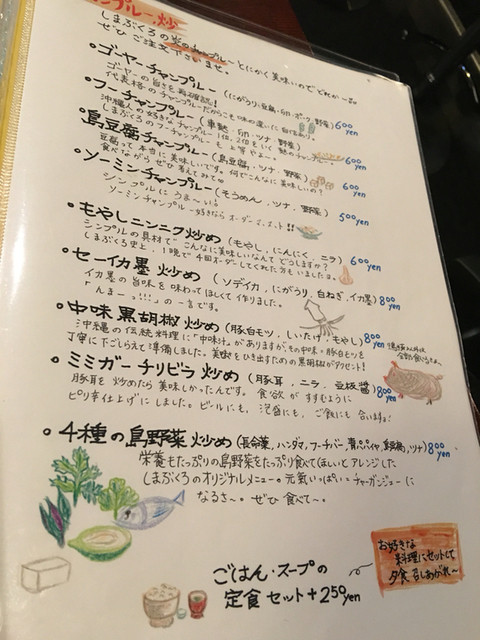 ンプルー,炒
しまぶくろの炎のチャンプルーとにかく美味いのでどれか一品
ぜひご注文下さいませ。
・ゴーヤーチャンプルー(にがうり・豆腐・卵・ポーク,野菜) 600yen
ゴーヤーの旨さを再確認!
代表格のチャンプルーだからこそ味の違いに自信あり。
・フーチャンプルー(車麩・卵・ツナ・野菜) 600yen
沖縄人の好きなチャンプルー
しまぶくろのフーチャンプルーも上等やよ〜。
・島豆腐チャンプルー(島豆腐・ツナ・野菜) 600yen
豆腐って本当に美味しいです。何でこんなに美味しいの?
食べながらぜひ考えてみて
・ソーミンチャンプルー(そうめん・ツナ・野菜) 500yen
シンプルにうま〜い
ソーミンチャンプルー好きならオーダーマスト!!
・もやしニンニク炒め(もやし,にんにく,ニラ) 600yen
シンプルの具材でこんなに美味しいなんてどうしますか?
しまぶくろ史上、1晩で4回オーダーしてくれた方もいましたよ。
・セーイカ墨炒め(ソデイカ,にがうり,白ねぎ,イカ墨) 800yen
イカ墨の旨味を味わってほしくて作りました。
「んまーっ!!!」の一言です。
・中味黒胡椒炒め(豚白モツ,しいたけ,もやし) 800yen
沖縄の伝統料理に"中味汁"がありますが、その中味・豚白モツを
丁寧に下ごしらえて準備しました。美味をひき出すための黒胡椒がアクセント!
・ミミガーチリビラ炒め(豚耳,ニラ,豆板醤) 800yen
豚耳を炒めたら美味しかったんです。食欲がすすむように
ピリ辛仕上げにしました。ビールにも、泡盛にも、ご飯にも合います♪
・4種の島野菜炒め(長命草,ハンダマ,フーチバー,青パパイヤ,島豆腐,ツナ) 800yen
栄養もたっぷりの島野菜をたっぷり食べてほしいとアレンジした
しまぶくろのオリジナルメニュー。元気いっぱいチャーガンジューに
なるさ〜。ぜひ食べて〜。
ごはん・スープの
定食セット+250yen
お好きな
料理にセットして
夕食召しあがれ〜